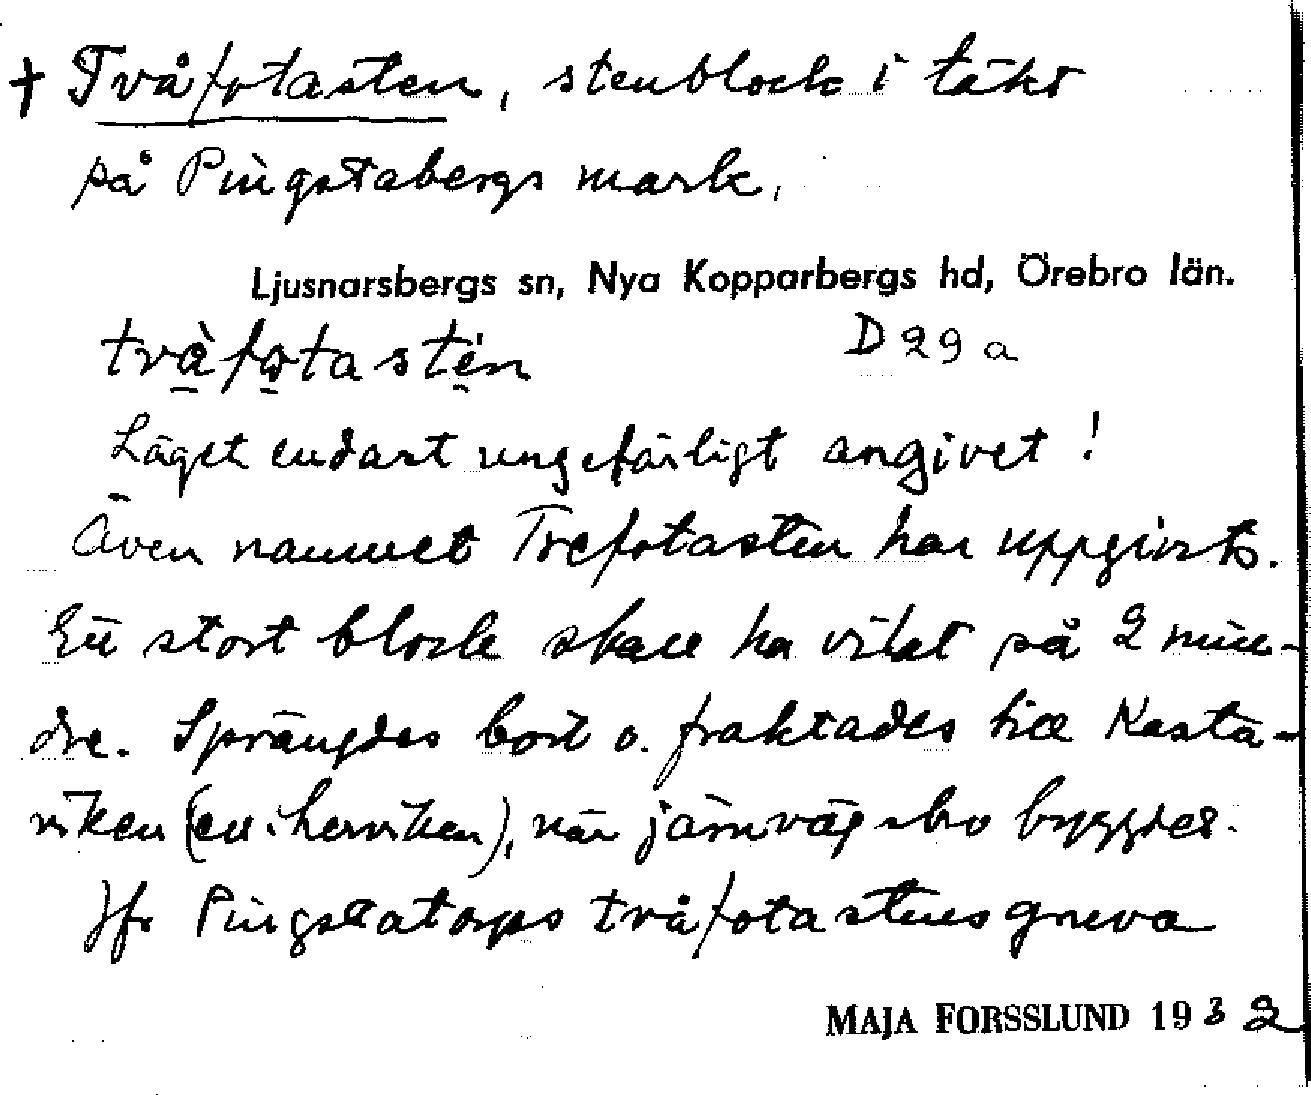 † Tvåfotasten, stenblock i täkt
på Pingstabergs mark.
Ljusnarsbergs sn, Nya Kopparbergs hd, Örebro län.
tvåfotastèn D 29 a
Läget endast ungefärligt angivet!
Även namnet Trefotasten har uppgivits.
Ett stort block skall ha vilat på 2 min-
dre. Sprängdes bort o. fraktades till Kasta-
viken, när järnvägsbro byggdes.
Jfr Pingstatorps tvåfotastensgruva
MAJA FORSSLUND 1932